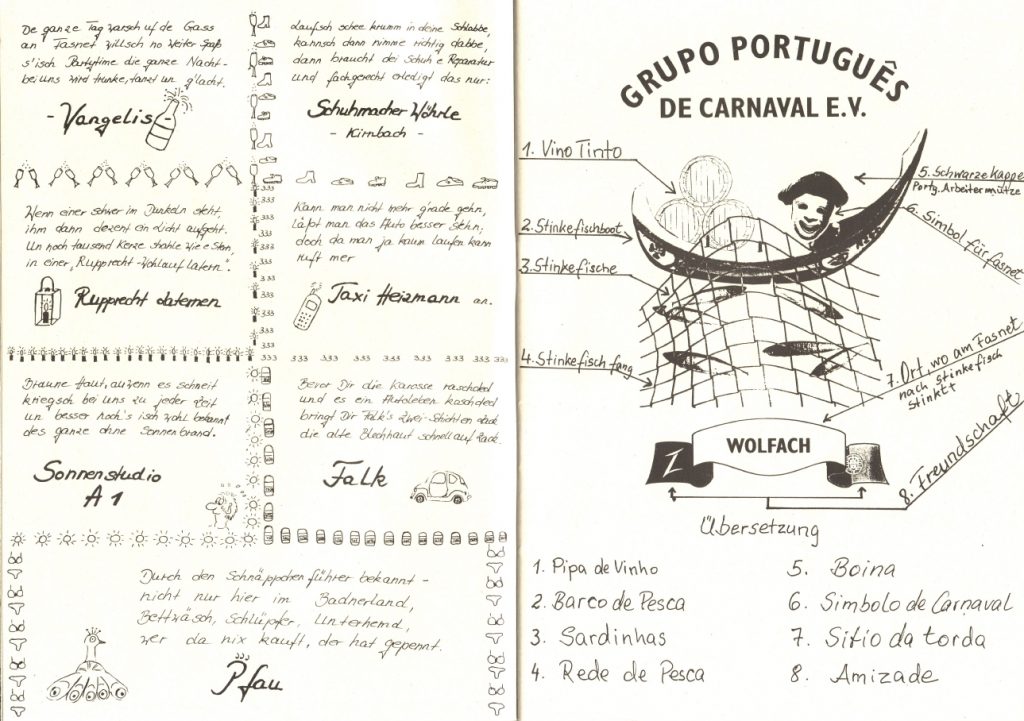 De ganze Tag warsch uf de Gass
an Fasnet willsch no weiter Spaß
s'isch Partytime die ganze Nacht-
bei uns wird trunke, tanzt un g'lacht.
- Vangelis
Laufsch schee krumm in deine Schlabbe,
kannsch dann nimme richtig dabbe,
dann braucht dei Schuh e Reparatur
und fachgerecht erledigt das nur:
Schuhmacher Wöhrle
- Kirnbach -
Wenn einer schwer im Dunkeln steht,
ihm dann dezent en Licht aufgeht.
Un noch tausend Kerze strahle wie e Stern,
in einer „Rupprecht-Wohlauf Latern".
Rupprecht Laternen
Kann man nicht mehr grade gehn,
läßt man das Auto besser stehn;
doch da man ja kaum laufen kann
ruft mer
Taxi Heizmann an.
Braune Haut, auwenn es schneit
kriegsch bei uns zu jeder Zeit
un besser noch: s isch wohl bekannt
des ganze ohne Sonnenbrand.
Sonnenstudio
A1
Bevor Dir die Karosse raschoded
und es ein Autoleben koschded
bringt Dir Falk's Zwei-Schichten
die alte Blechhaut schnell auf Zack.
Falk
Durch den Schnäppchenführer bekannt -
nicht nur hier im Badnerland,
Bettwäsch, Schlüpfer, Unterhemd,
wer da nix kauft, der hat gepennt.
Pfau
GRUPO PORTUGUÊS
DE CARNAVAL E.V.
1. Vino Tinto
2. Stinkefischboot
3. Stinkefische
4. Stinkefisch fang
5. Schwarze Kappe
Portg. Arbeitermütze
6. Simbol für Fasnet
7. Ort, wo am Fasnet
nach stinkefisch
stinkt
8. Freundschaft
WOLFACH
Übersetzung
1. Pipa de Vinho
2. Barco de Pesca
3. Sardinhas
4. Rede de Pesca
5. Boina
6. Simbolo de Carnaval
7. Sitio da torda
8. Amizade